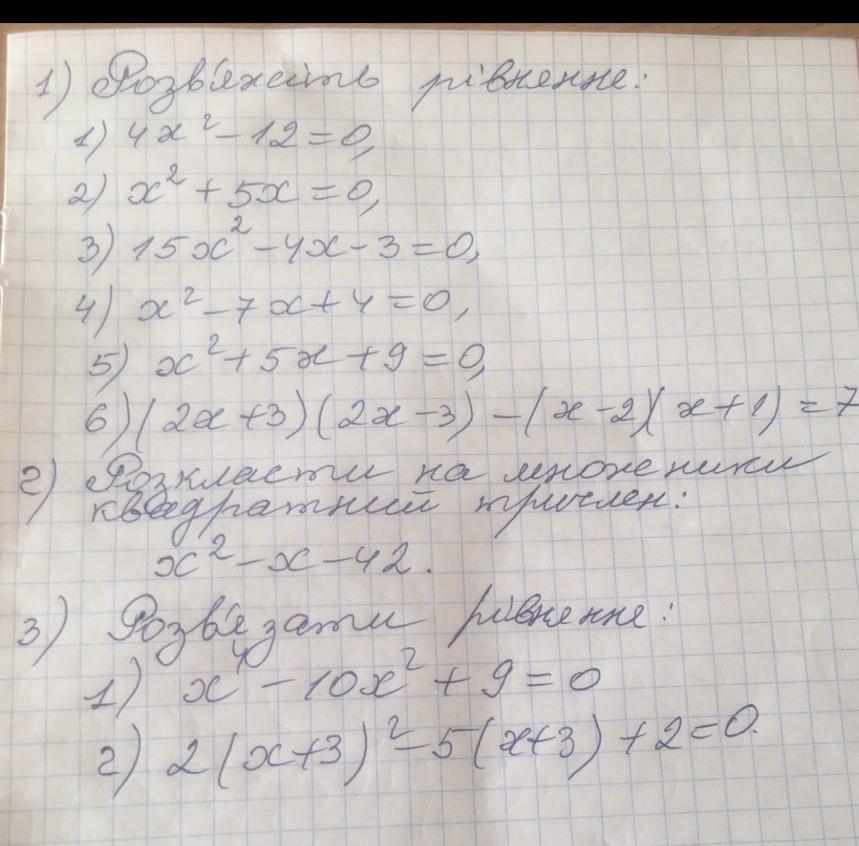 1) Розв'яжіть рівняння:
1) 4x² - 12 = 0,
2) x² + 5x = 0,
3) 15x² - 4x - 3 = 0,
4) x² - 7x + 4 = 0,
5) x² + 5x + 9 = 0,
6) (2x + 3)(2x - 3) - (x - 2)(x + 1) = 7
2) Розкласти на множники
квадратний тричлен:
x² - x - 42.
3) Розв'язати рівняння:
1) x⁴ - 10x² + 9 = 0
2) 2(x+3)² - 5(x+3) + 2 = 0.